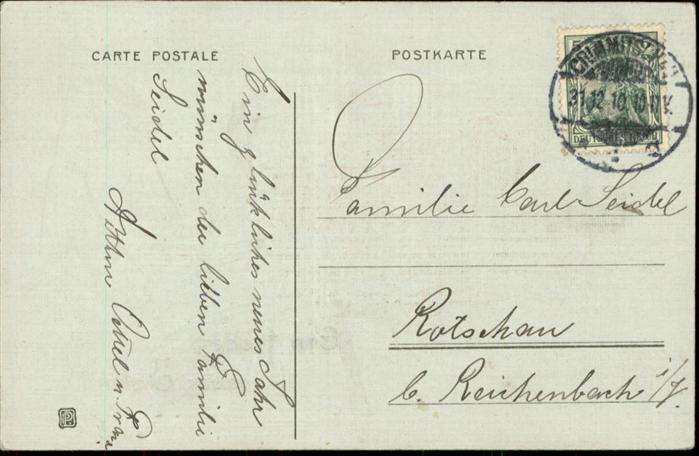 CARTE POSTALE
POSTKARTE
Ein glückliches neues Jahr
wünschen der lieben Familie
Seidel
Familie Carl Seidel
Rotschau
b. Reichenbach i/V.
CRIMMITSCHAU
31.12.10.10-11V.
DEUTSCHES REICH